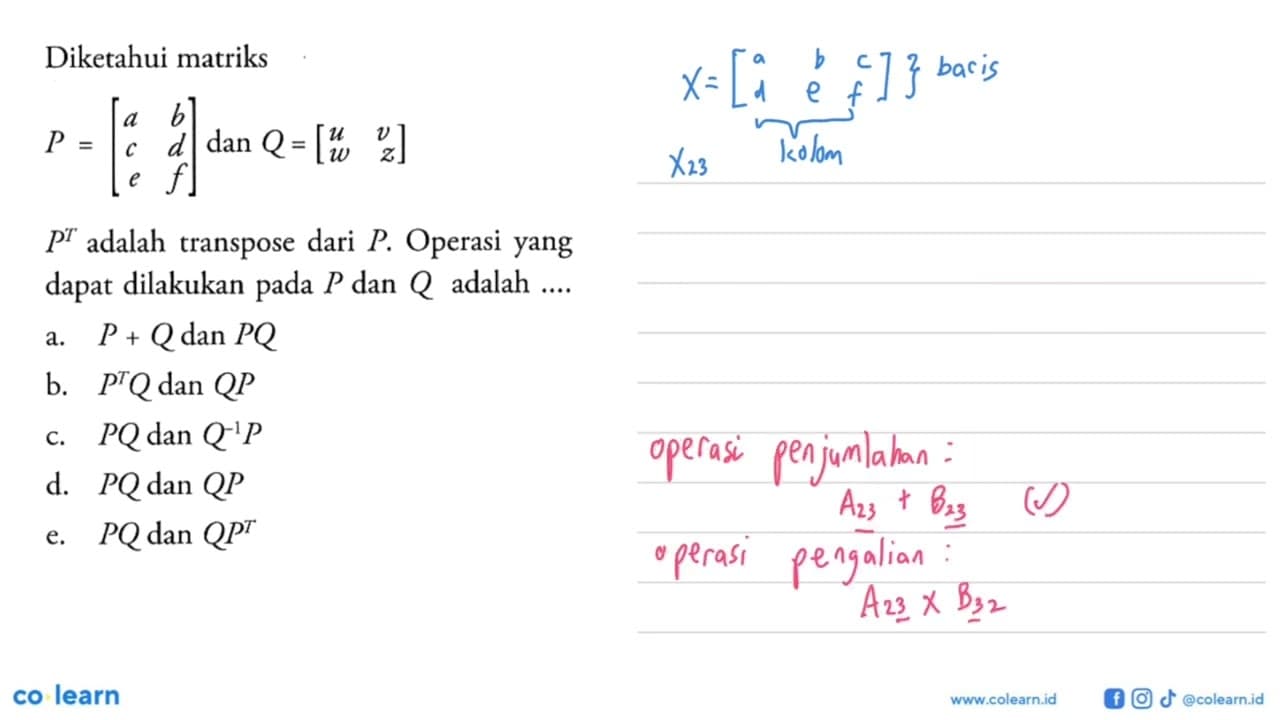 Diketahui matriks
P = [a b c d e f] dan Q = [u v w z]
Pᵀ adalah transpose dari P. Operasi yang
dapat dilakukan pada P dan Q adalah ....
a. P + Q dan PQ
b. PᵀQ dan QP
c. PQ dan Q⁻¹P
d. PQ dan QP
e. PQ dan QPᵀ
X = [a b c d e f] } baris
kolom
X23
operasi penjumlahan :
A23 + B23 (✓)
operasi pengalian :
A23 x B32
co learn
www.colearn.id
@colearn.id